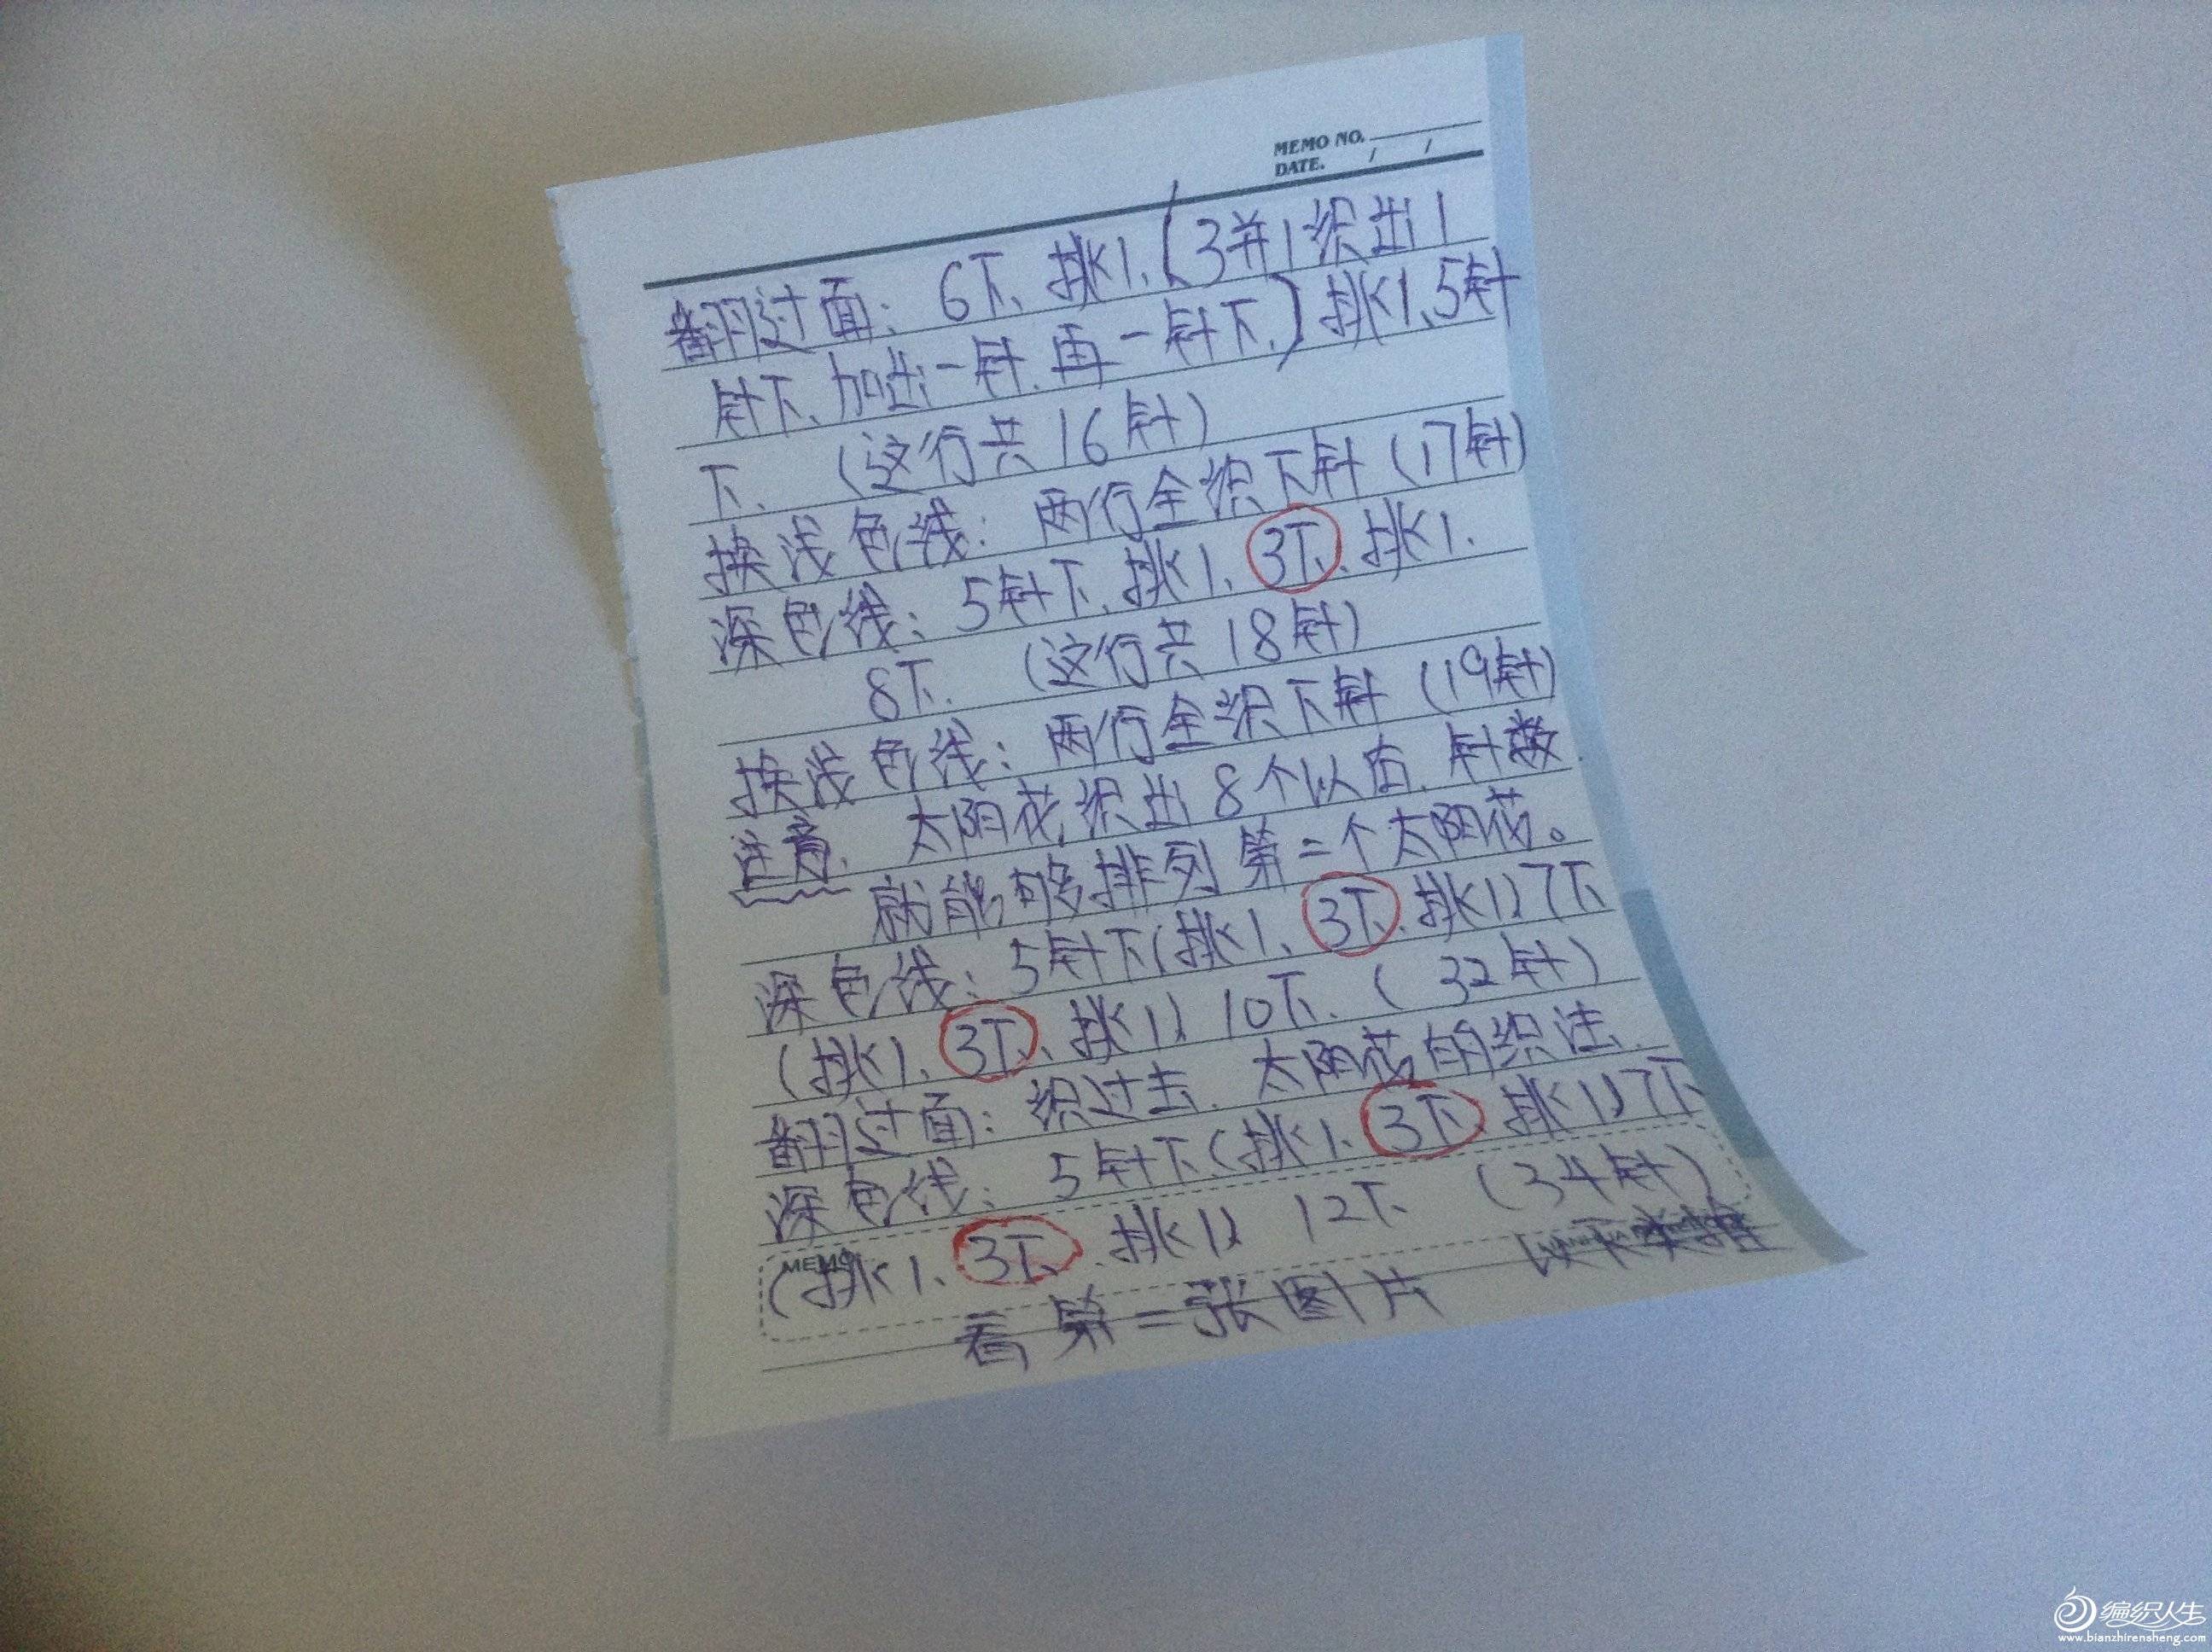 MEMO NO.
DATE. / /
翻过面：6下、挑1、(3并1织出1
针下、加出一针、再一针下、)挑1、5针
下、（这行共16针）
换浅色线：两行全织下针（17针）
深色线：5针下、挑1、3下、挑1、
8下、（这行共18针）
换浅色线：两行全织下针（19针）
注意、太阳花织出8个以后、针数
就能够排列第二个太阳花。
深色线：5针下(挑1、3下、挑1)7下
(挑1、3下、挑1)10下、（32针）
翻过面：织过去、太阳花的织法、
深色线：5针下(挑1、3下、挑1)7下
(挑1、3下、挑1)12下（34针）
MEMO
看第二张图片
编织人生
www.bianzhirensheng.com